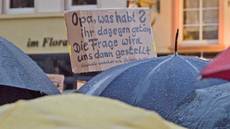 im Flora
Opa, was habt
ihr dagegen getan?
Die Frage wird
uns dann gestellt